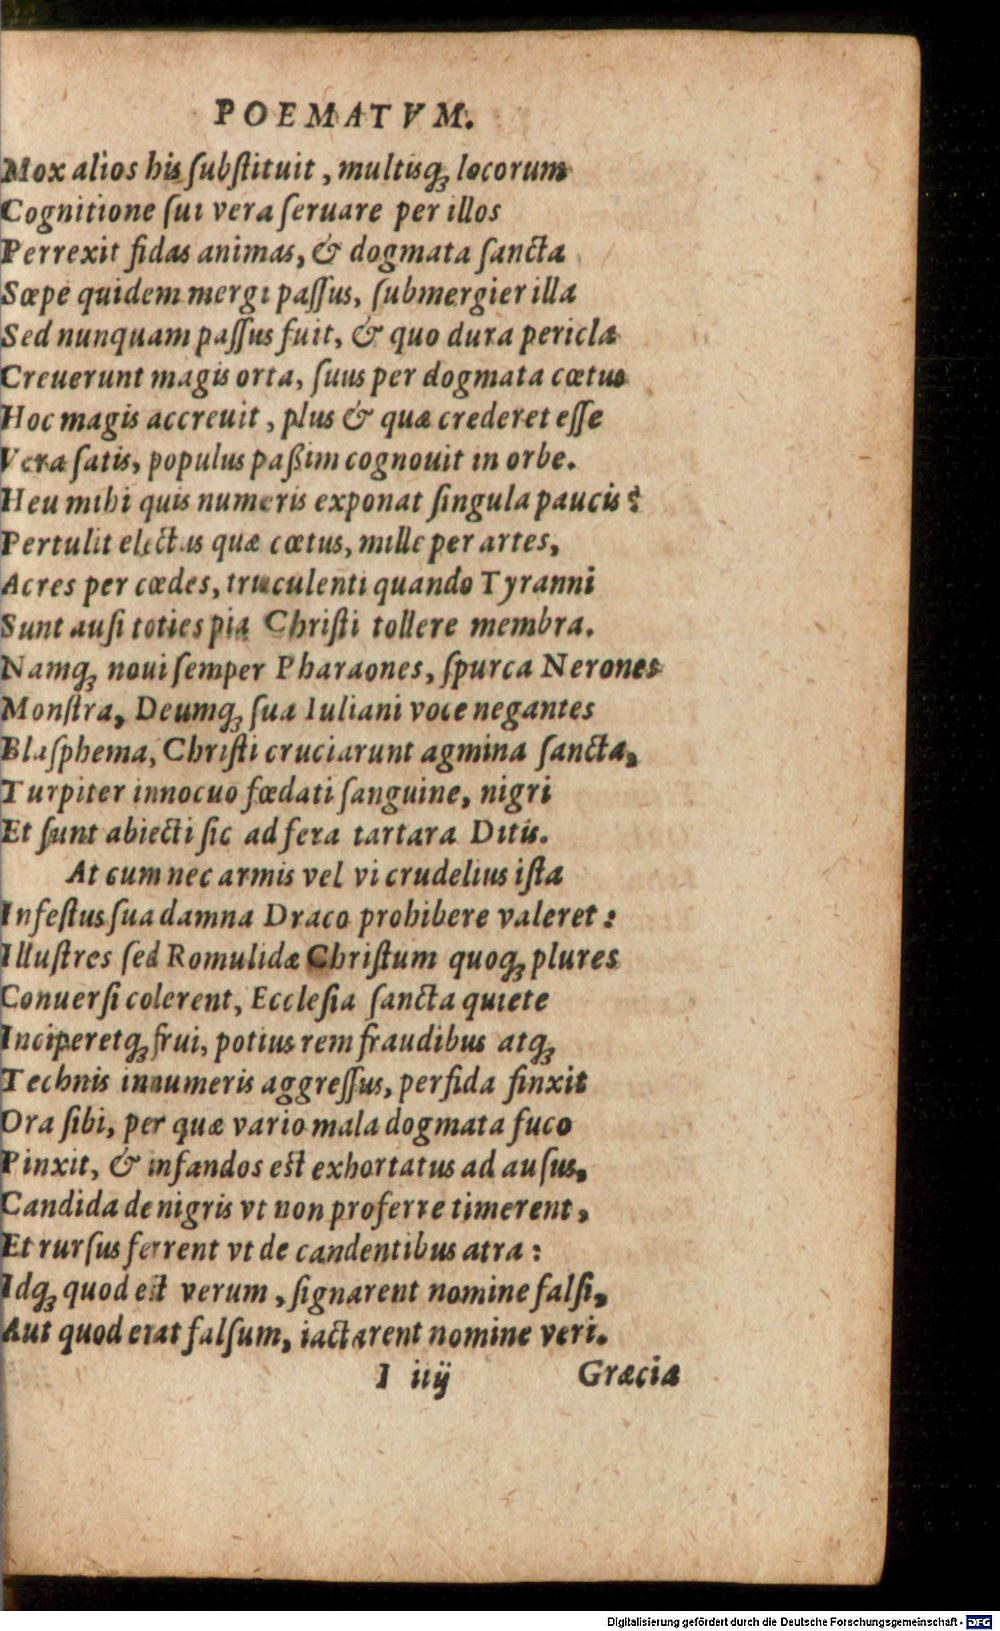 POEMATVM.
Mox alios his ſubſtituit, multisq; locorum
Cognitione ſui vera ſeruare per illos
Perrexit fidas animas, & dogmata ſancta
Sœpe quidem mergi paſſus, ſubmergier illa
Sed nunquam paſſus fuit, & quo dura pericla
Creuerunt magis orta, ſuus per dogmata cœtus
Hoc magis accreuit, plus & quæ crederet eſſe
Vera ſatis, populus paßim cognouit in orbe.
Heu mihi quis numeris exponat ſingula paucis?
Pertulit electus quæ cœtus, mille per artes,
Acres per cœdes, truculenti quando Tyranni
Sunt auſi toties pia Chriſti tollere membra.
Namq; noui ſemper Pharaones, ſpurca Nerones
Monſtra, Deumq; ſua Iuliani voce negantes
Blaſphema, Chriſti cruciarunt agmina ſancta,
Turpiter innocuo fœdati ſanguine, nigri
Et ſunt abiecti ſic ad fera tartara Ditis.
At cum nec armis vel vi crudelius iſta
Infeſtus ſua damna Draco prohibere valeret:
Illuſtres ſed Romulidæ Chriſtum quoq; plures
Conuerſi colerent, Eccleſia ſancta quiete
Inciperetq; frui, potius rem fraudibus atq;
Technis innumeris aggreſſus, perfida finxit
Ora ſibi, per quæ vario mala dogmata fuco
Pinxit, & infandos est exhortatus ad auſus,
Candida de nigris vt non proferre timerent,
Et rurſus ferrent vt de candentibus atra:
Idq; quod est verum, ſignarent nomine falſi,
Aut quod erat falſum, iactarent nomine veri.
I iiij Græcia
Digitalisierung gefördert durch die Deutsche Forschungsgemeinschaft - DFG